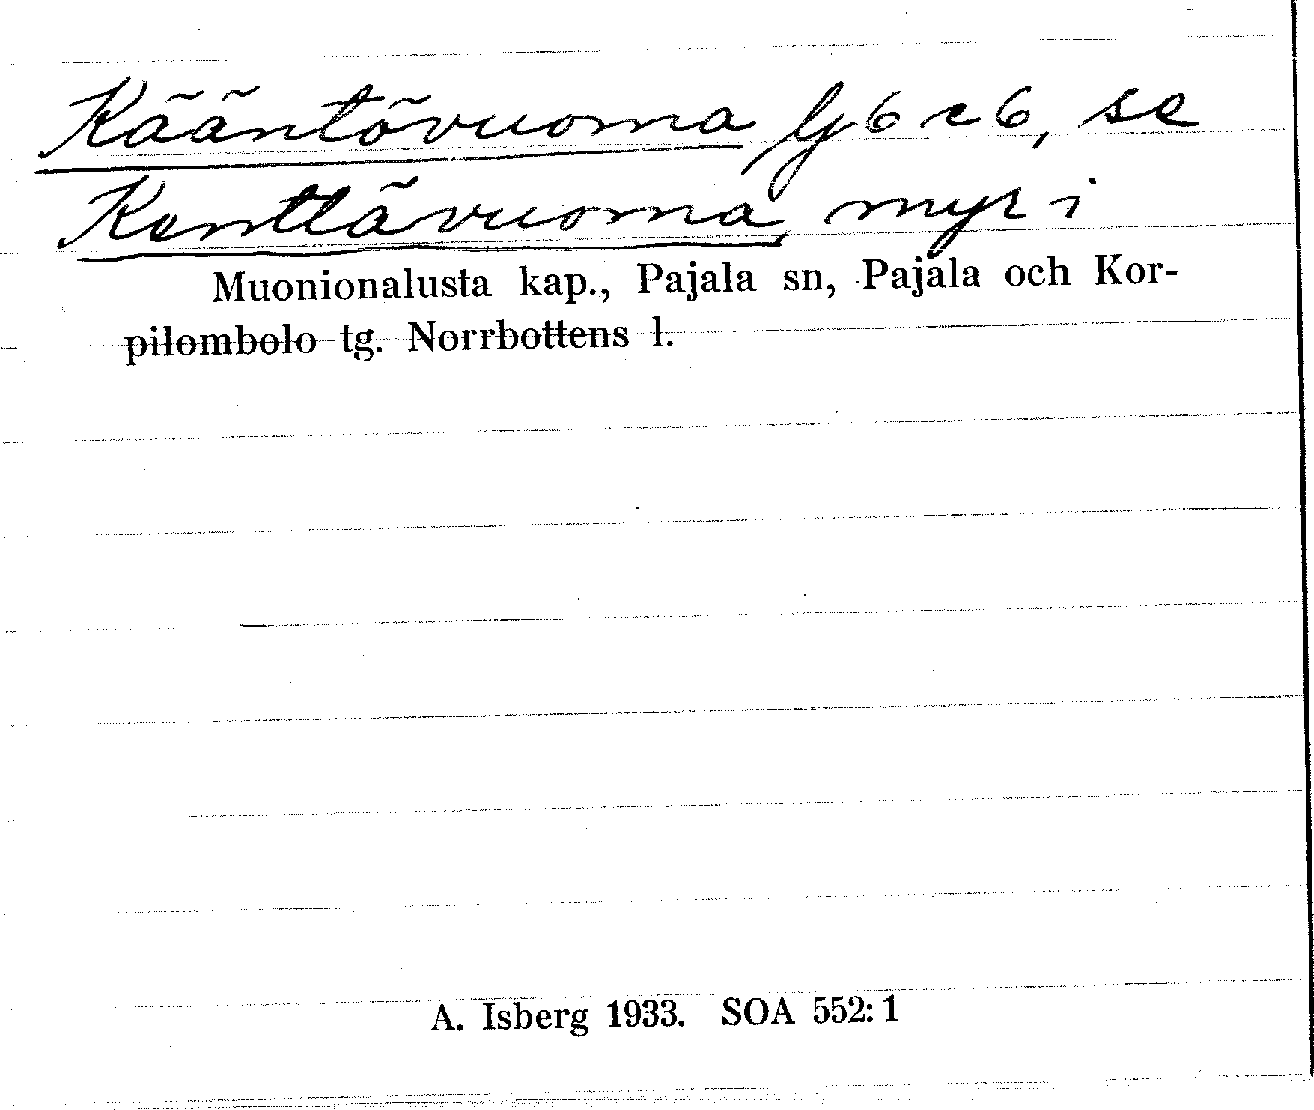 Kääntövuoma Gj 6 c 6, se
Kenttävuoma, myr i
Muonionalusta kap., Pajala sn, Pajala och Kor-
pilombolo tg. Norrbottens l.
A. Isberg 1933. SOA 552:1